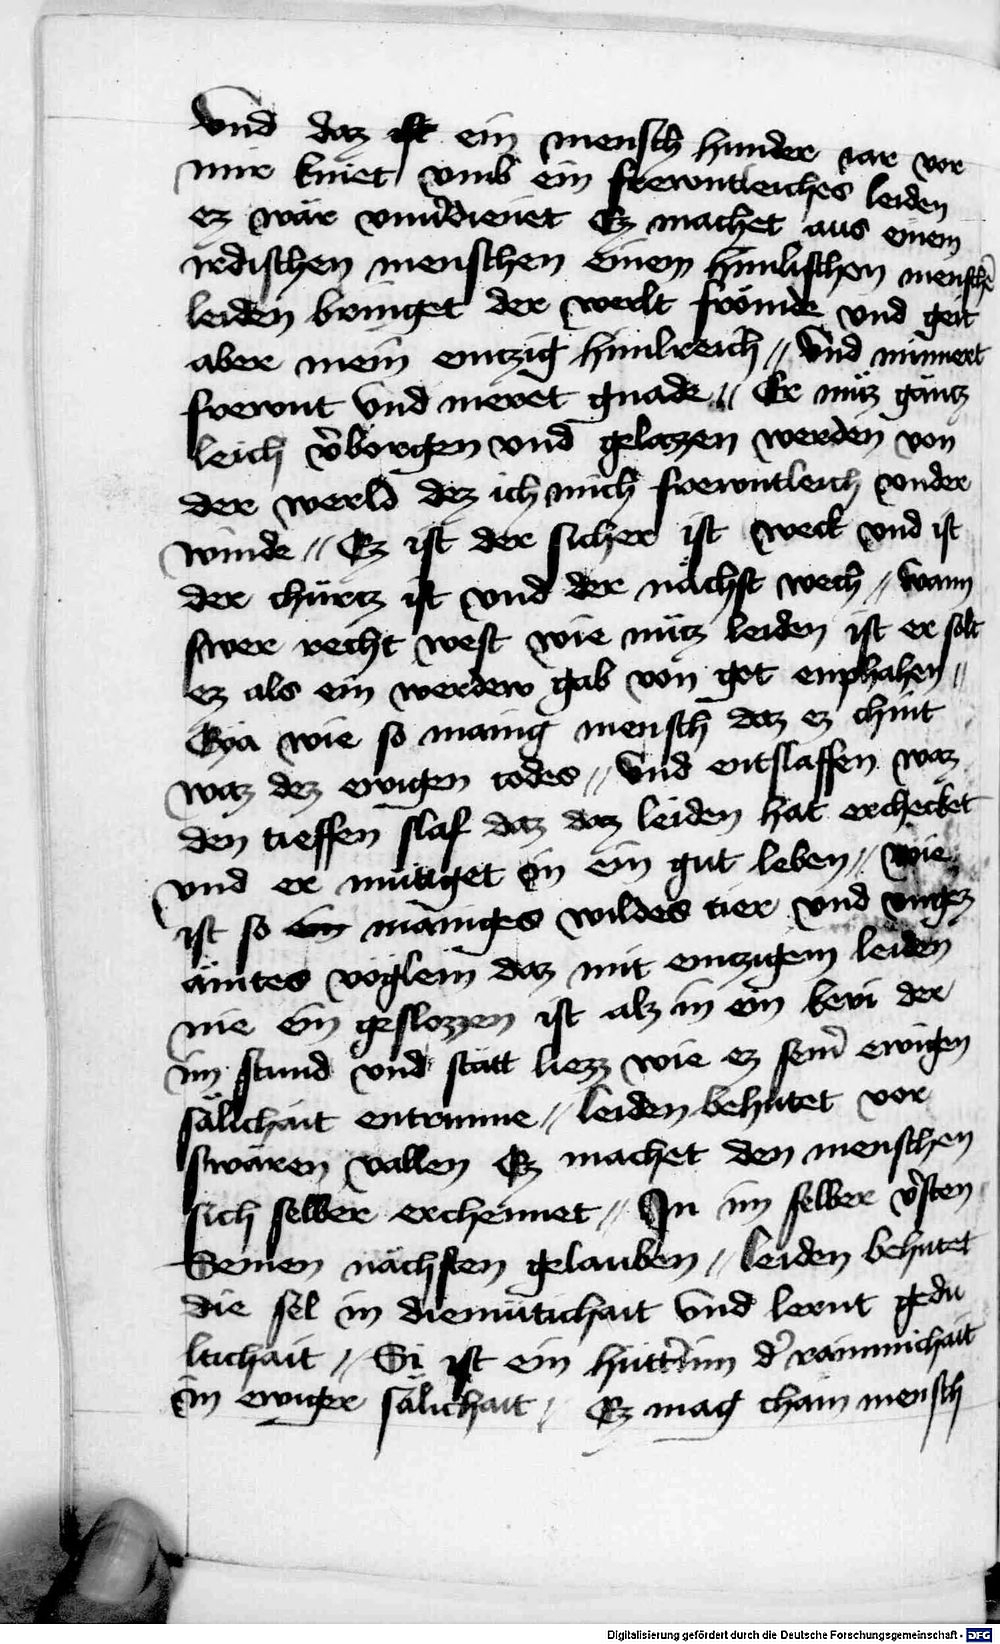 Vnd daz ist ein mensch hunder iar vor
mir kniet vmb ein frewntleiches leiden
ez wär vnuerdienet Ez machet aus einem
irdischen menschen einem himlischen mensche
leiden bringet der werlt frömde vnd geit
aber mein emtzig himlreich // Vnd minnert
frewnt Vnd meret gnade // Er müz gäntz
leich verborgen vnd gelazzen werden von
der werld dez ich mich frewntleich vnder
winde // Ez ist der sicher ist weck vnd ist
der chürtz ist vnd der nächst wech // wann
swer recht west wie nütz leiden ist er solt
ez als ein werdew gab von got enphahen //
Eya wie so manig mensch daz ez chint
waz dez ewigen todes // Vnd entslaffen waz
den tieffen slaf daz daz leiden hat erchecket
vnd er mutiget in ein gut leben // wie
ist so ein maniges wildes tier vnd vngez
ämtes voglein daz mit emtzigem leiden
nie ein geslozzen ist alz in ein kevi der
im stund vnd statt liezz wie ez seiner ewigen
sälichait entrunne // leiden behutet vor
swären vallen Ez machet den menschen
sich selber erchennet // In im selber versten
Seinen nächsten gelauben // leiden behutet
die sel in diemutichait Vnd lernt gedu
ltichait // Si ist ein hütterinn der rainnichait
in ewiger sälichait // Ez mag chain mensch
Digitalisierung gefördert durch die Deutsche Forschungsgemeinschaft - DFG